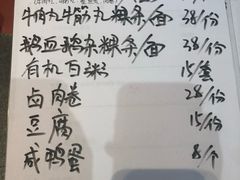 牛肉丸牛筋丸粿条/面 38/份
鹅血鹅杂粿条/面 38/份
有机百粥 15/盒
卤肉卷 28/份
豆腐 15/份
咸鸭蛋 8/个